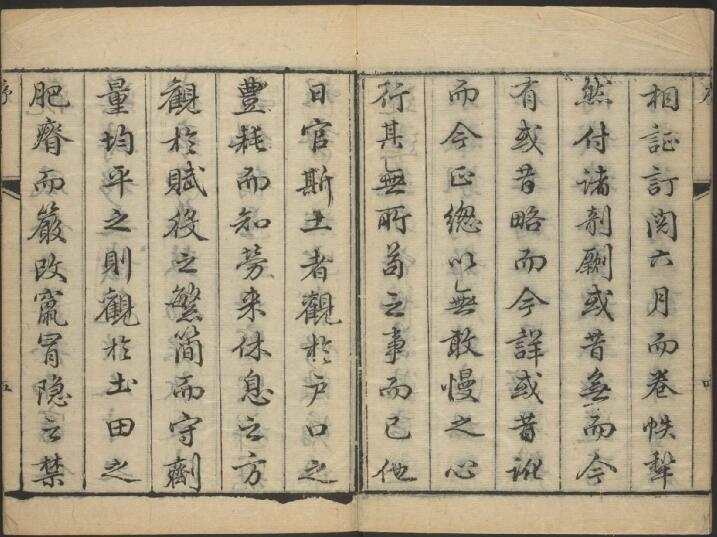 相証訂閲六月而卷帙犂
然付諸剞劂或昔無而今
有或昔略而今詳或昔訛
而今正總以無敢慢之心
行其無所苟之事而已他
日官斯土者觀於户口之
豐耗而知勞来休息之方
觀於賦役之繁簡而守劑
量均平之則觀於土田之
肥瘠而嚴改竄冐隐之禁
序